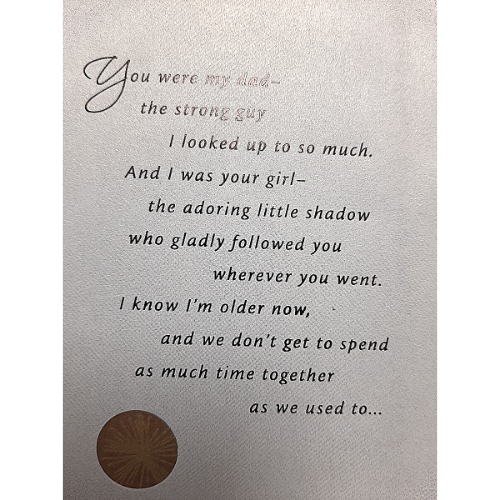 You were my dad–
the strong guy
I looked up to so much.
And I was your girl–
the adoring little shadow
who gladly followed you
wherever you went.
I know I'm older now,
and we don't get to spend
as much time together
as we used to...